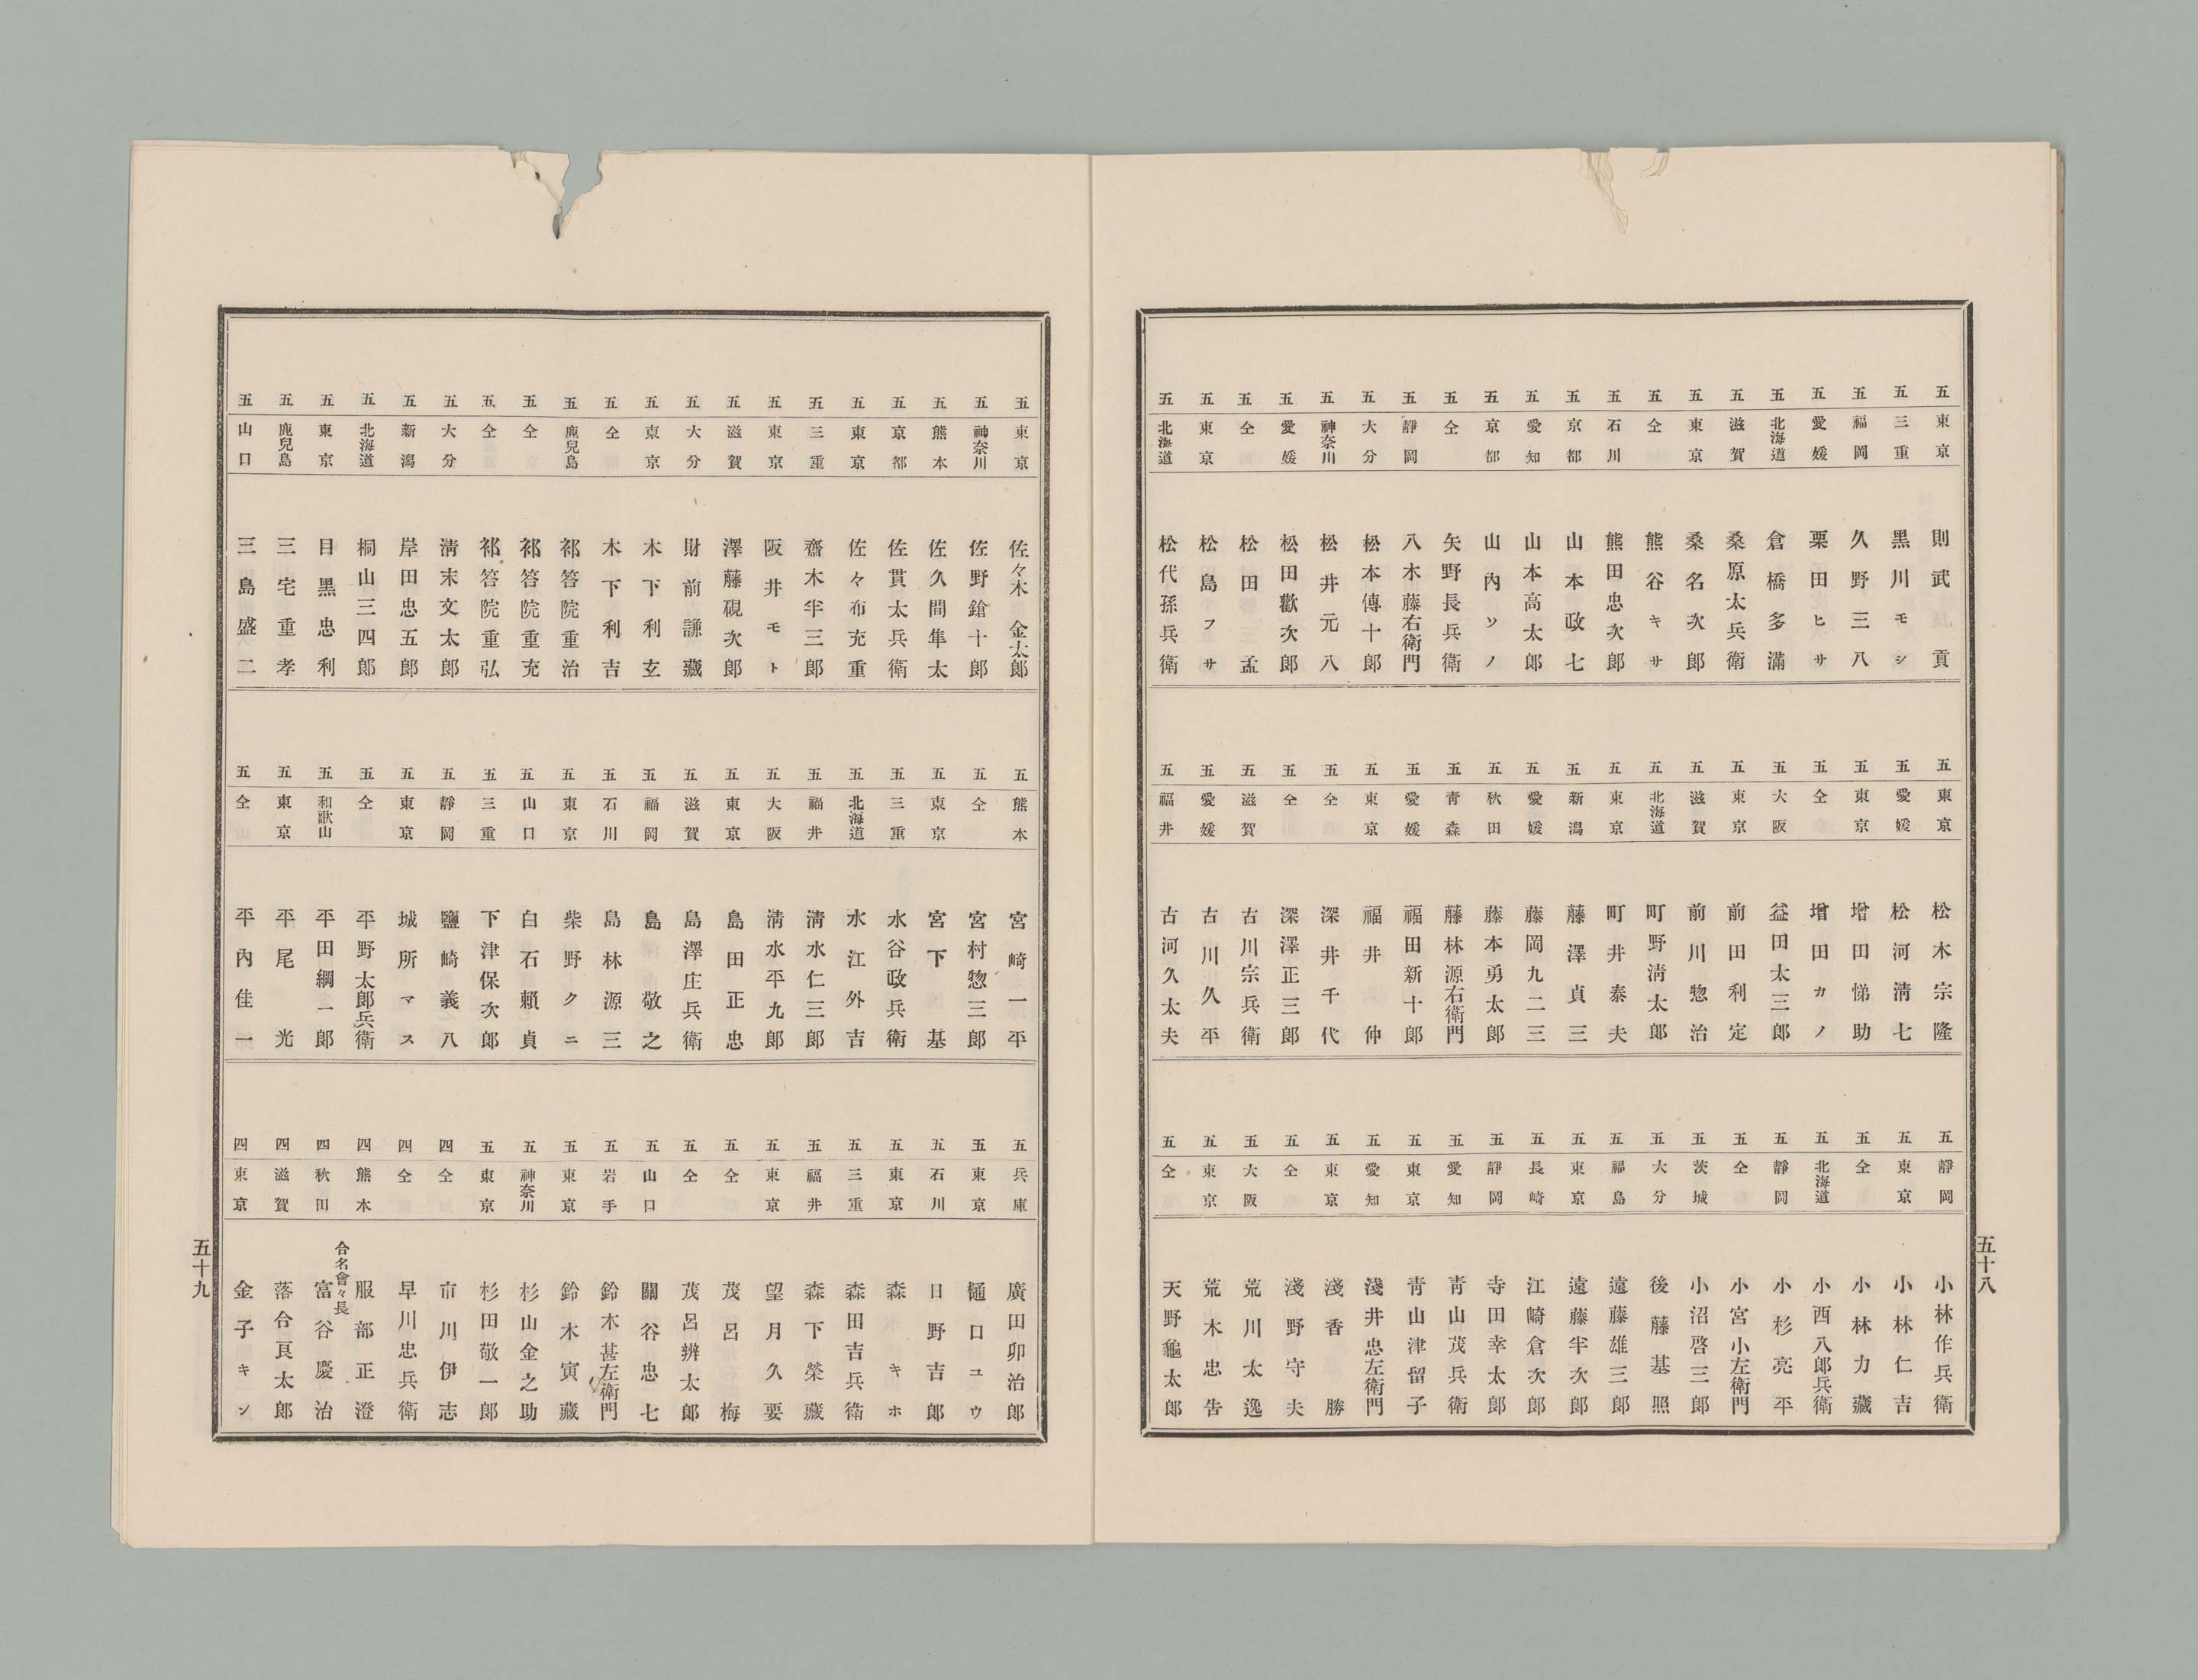 五十八
五 東京 則武貢
五 三重 黒川モシ
五 福岡 久野三八
五 愛媛 栗田ヒサ
五 北海道 倉橋多滿
五 滋賀 桑原太兵衛
五 東京 桑名次郎
五 仝 熊谷キサ
五 石川 熊田忠次郎
五 京都 山本政七
五 愛知 山本高太郎
五 京都 山内ソノ
五 仝 矢野長兵衛
五 靜岡 八木藤右衛門
五 大分 松本傳十郎
五 神奈川 松井元八
五 愛媛 松田歡次郎
五 仝 松田孟
五 東京 松島フサ
五 北海道 松代孫兵衛
五 東京 松木宗隆
五 愛媛 松河淸七
五 東京 增田悌助
五 仝 增田カノ
五 大阪 益田太三郎
五 東京 前田利定
五 滋賀 前川惣治
五 北海道 町野淸太郎
五 東京 町井泰夫
五 新潟 藤澤貞三
五 愛媛 藤岡九二三
五 秋田 藤本勇太郎
五 靑森 藤林源右衛門
五 愛媛 福田新十郎
五 東京 福井仲
五 仝 深井千代
五 仝 深澤正三郎
五 滋賀 古川宗兵衛
五 愛媛 古川久平
五 福井 古河久太夫
五 靜岡 小林作兵衛
五 東京 小林仁吉
五 仝 小林力藏
五 北海道 小西八郎兵衛
五 靜岡 小杉亮平
五 仝 小宮小左衛門
五 茨城 小沼啓三郎
五 大分 後藤基照
五 福島 遠藤雄三郎
五 東京 遠藤半次郎
五 長崎 江崎倉次郎
五 靜岡 寺田幸太郎
五 愛知 靑山茂兵衛
五 東京 靑山津留子
五 愛知 淺井忠左衛門
五 東京 淺香勝
五 仝 淺野守夫
五 大阪 荒川太逸
五 東京 荒木忠告
五 仝 天野龜太郎
五 東京 佐々木金太郎
五 神奈川 佐野鎗十郎
五 熊本 佐久間隼太
五 京都 佐貫太兵衛
五 東京 佐々布充重
五 三重 齋木半三郎
五 東京 阪井モト
五 滋賀 澤藤硯次郎
五 大分 財前謙藏
五 東京 木下利玄
五 仝 木下利吉
五 鹿兒島 祁答院重治
五 仝 祁答院重充
五 仝 祁答院重弘
五 大分 淸末文太郎
五 新潟 岸田忠五郎
五 北海道 桐山三四郎
五 東京 目黒忠利
五 鹿兒島 三宅重孝
五 山口 三島盛二
五 熊本 宮崎一平
五 仝 宮村惣三郎
五 東京 宮下基
五 三重 水谷政兵衛
五 北海道 水江外吉
五 福井 淸水仁三郎
五 大阪 淸水平九郎
五 東京 島田正忠
五 滋賀 島澤庄兵衛
五 福岡 島敬之
五 石川 島林源三
五 東京 柴野クニ
五 山口 白石賴貞
五 三重 下津保次郎
五 靜岡 鹽崎義八
五 東京 城所マス
五 仝 平野太郎兵衛
五 和歌山 平田綱一郎
五 東京 平尾光
五 仝 平內佳一
五 兵庫 廣田卯治郎
五 東京 樋口ユウ
五 石川 日野吉郎
五 東京 森キホ
五 三重 森田吉兵衛
五 福井 森下榮藏
五 東京 望月久要
五 仝 茂呂梅
五 仝 茂呂辨太郎
五 山口 關谷忠七
五 岩手 鈴木甚左衛門
五 東京 鈴木寅藏
五 神奈川 杉山金之助
五 東京 杉田敬一郎
四 仝 市川伊志
四 仝 早川忠兵衛
四 熊本 服部正澄
四 秋田 合名會々長 富谷慶治
四 滋賀 落合良太郎
四 東京 金子キン
五十九